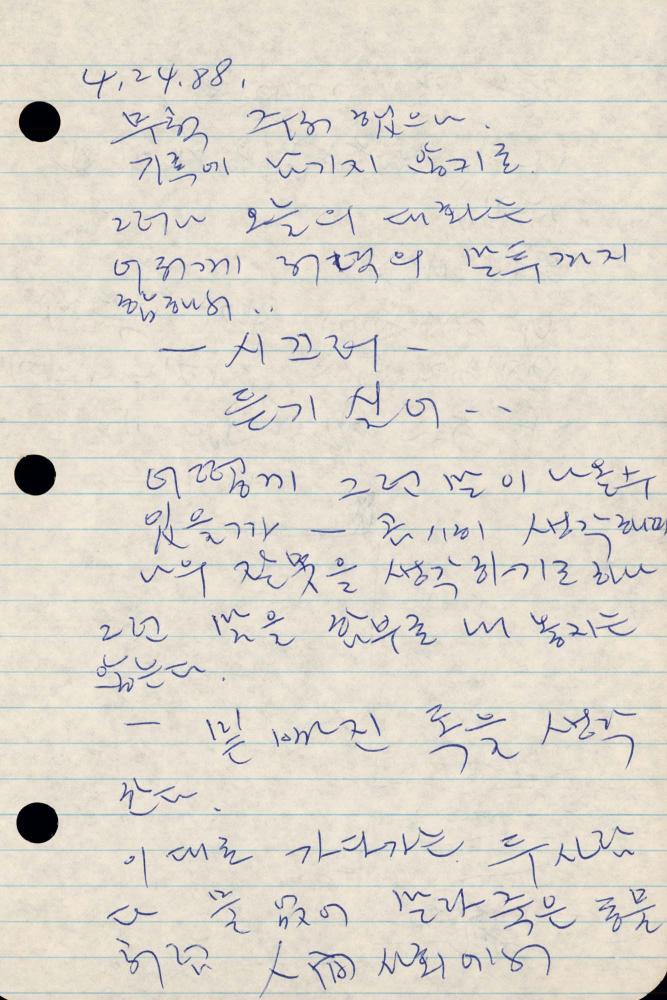 4.24.88.
무척 주저 했으나.
기록에 남기지 않기로.
그러나 오늘의 대화는
어떻게 저녁의 말투까지
합해서..
— 시끄러 —
듣기 싫어 - -
어떻게 그런 말이 나올수
있을가 — 곰곰이 생각하며
나의 잘못을 생각 하기로 하나
그런 말을 함부로 내 놓지는
않는다.
— 밑 빠진 독을 생각
한다.
이대로 가다가는 두사람
다 물 없어 말라 죽은 동물
처럼 人間 사회에서